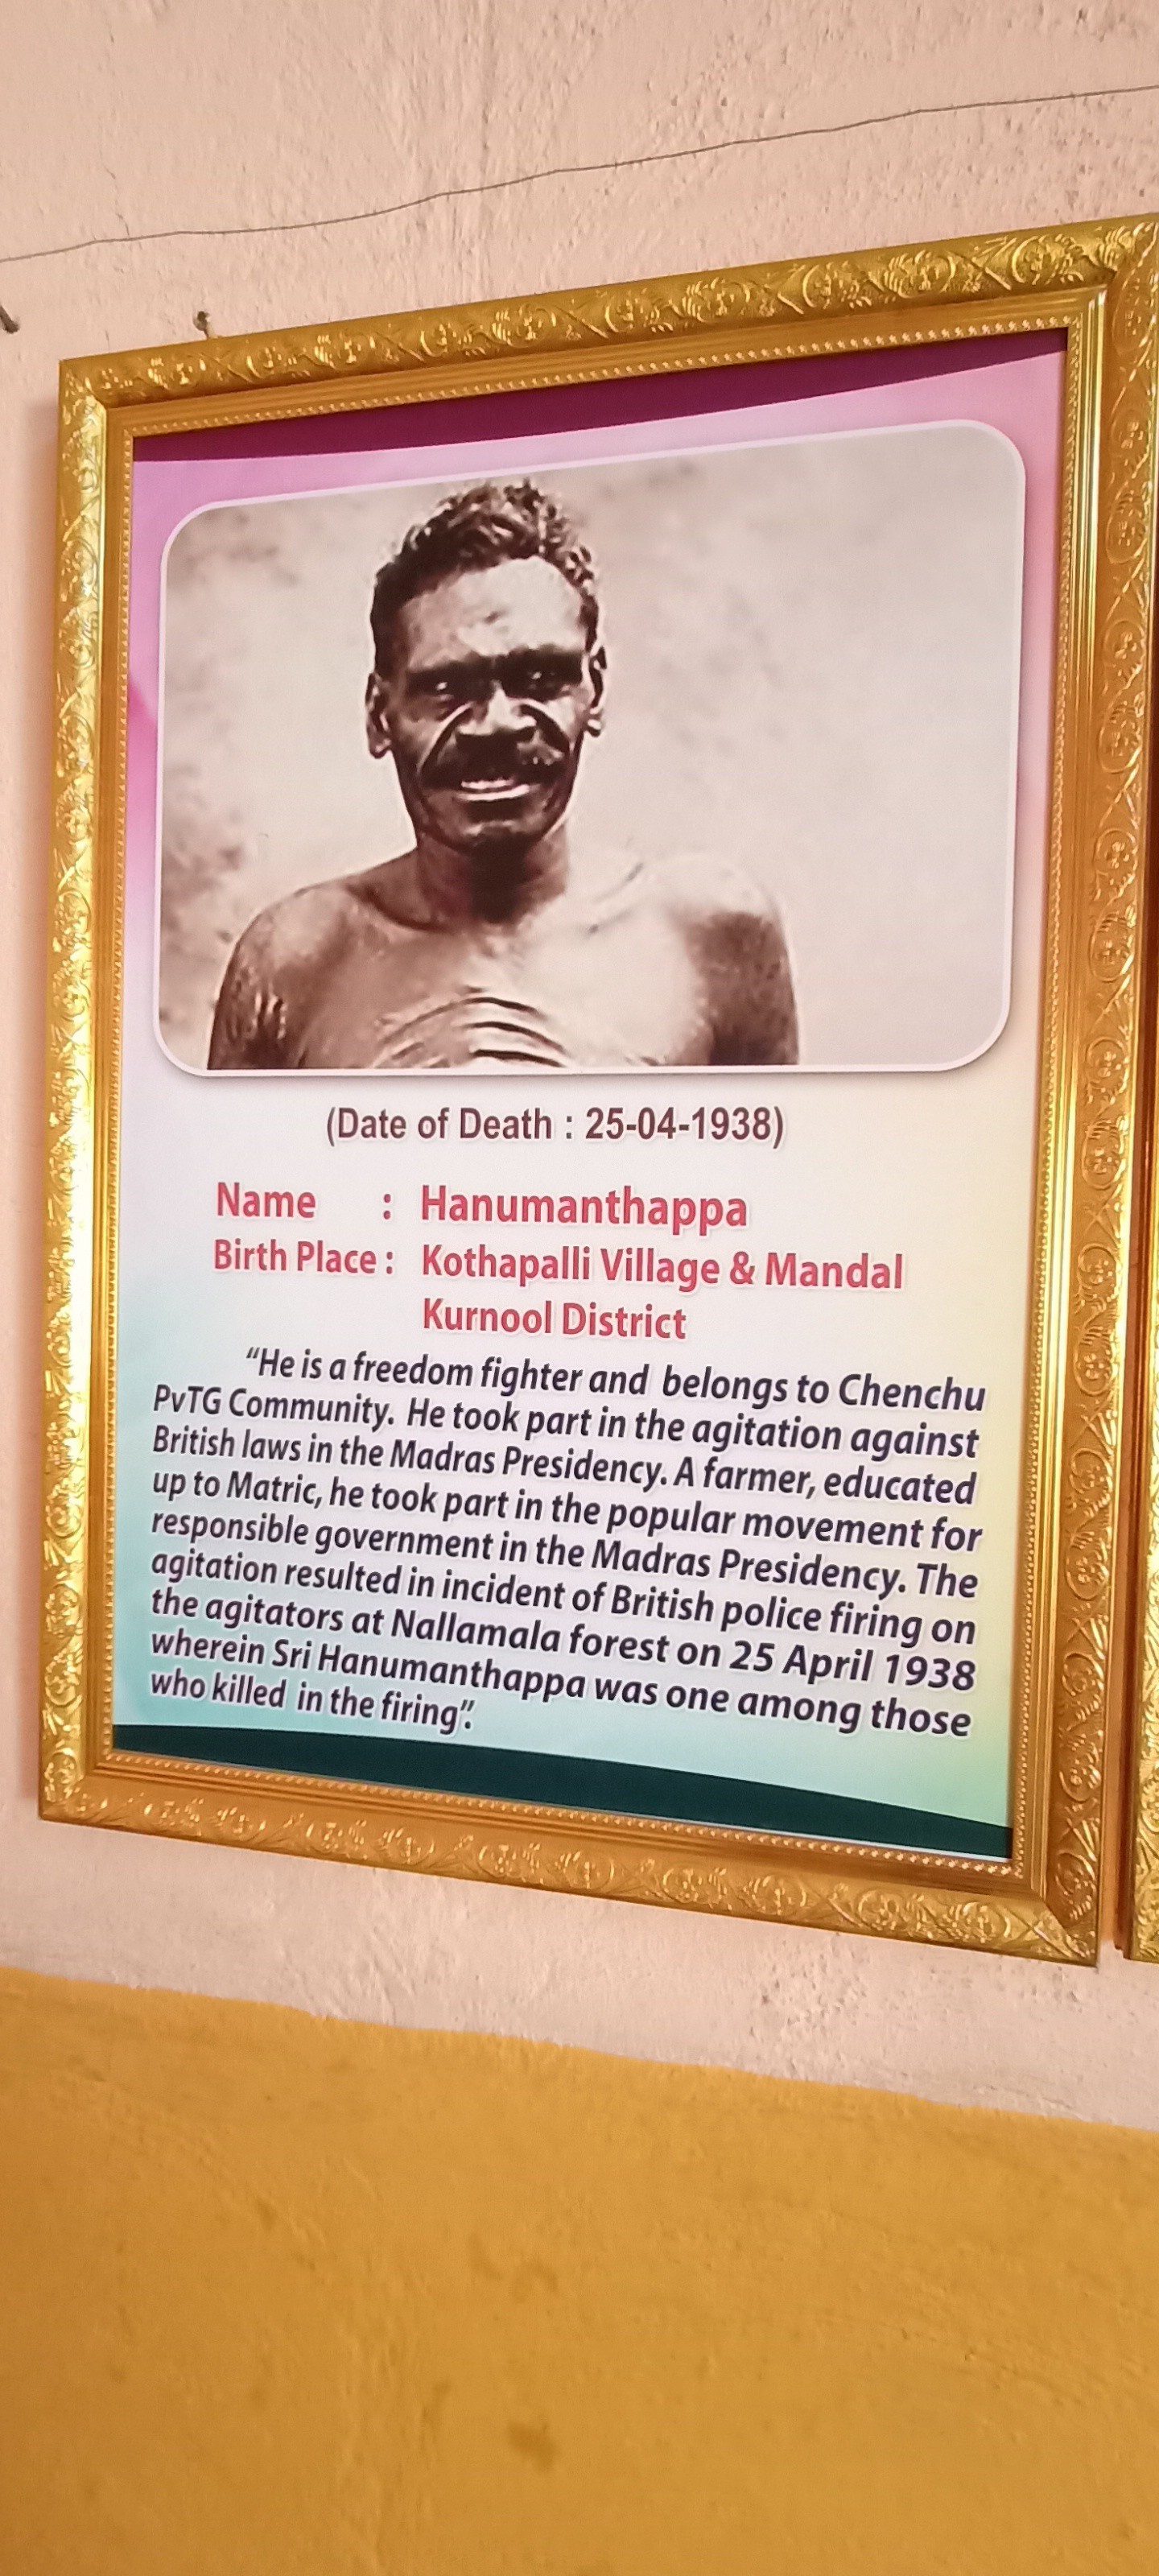 (Date of Death : 25-04-1938)
Name : Hanumanthappa
Birth Place : Kothapalli Village & Mandal
Kurnool District
"He is a freedom fighter and belongs to Chenchu
PvTG Community. He took part in the agitation against
British laws in the Madras Presidency. A farmer, educated
up to Matric, he took part in the popular movement for
responsible government in the Madras Presidency. The
agitation resulted in incident of British police firing on
the agitators at Nallamala forest on 25 April 1938
wherein Sri Hanumanthappa was one among those
who killed in the firing".